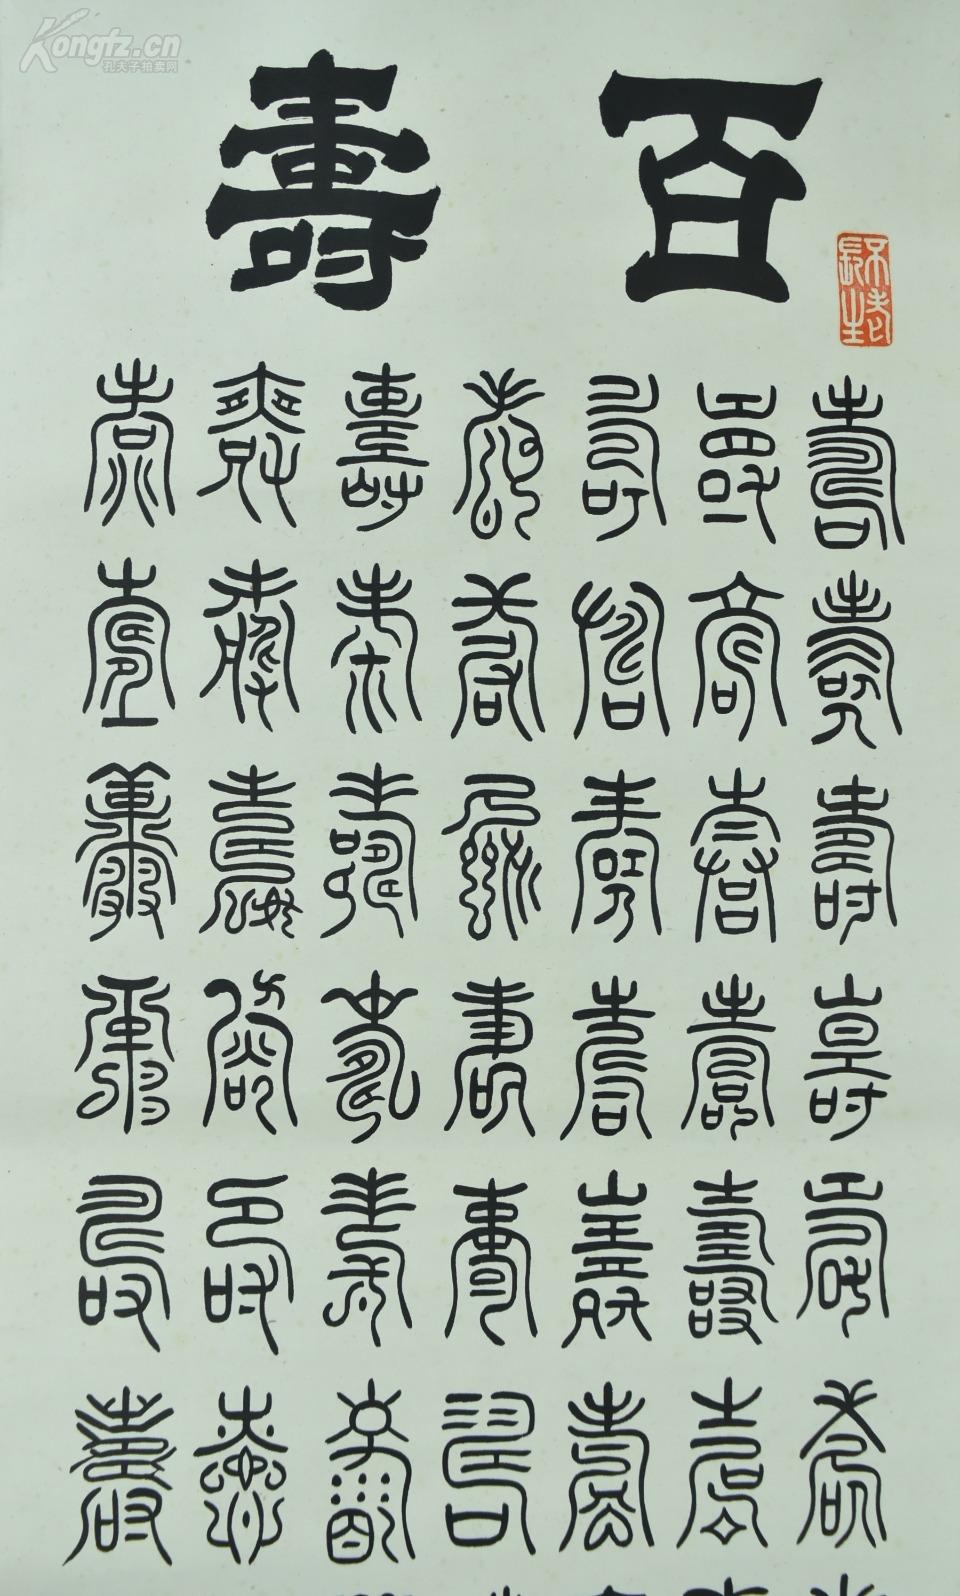 Kongfz.cn
孔夫子拍卖网
百壽
壽壽壽壽壽壽壽
壽壽壽壽壽壽壽
壽壽壽壽壽壽壽
壽壽壽壽壽壽壽
壽壽壽壽壽壽壽
壽壽壽壽壽壽壽